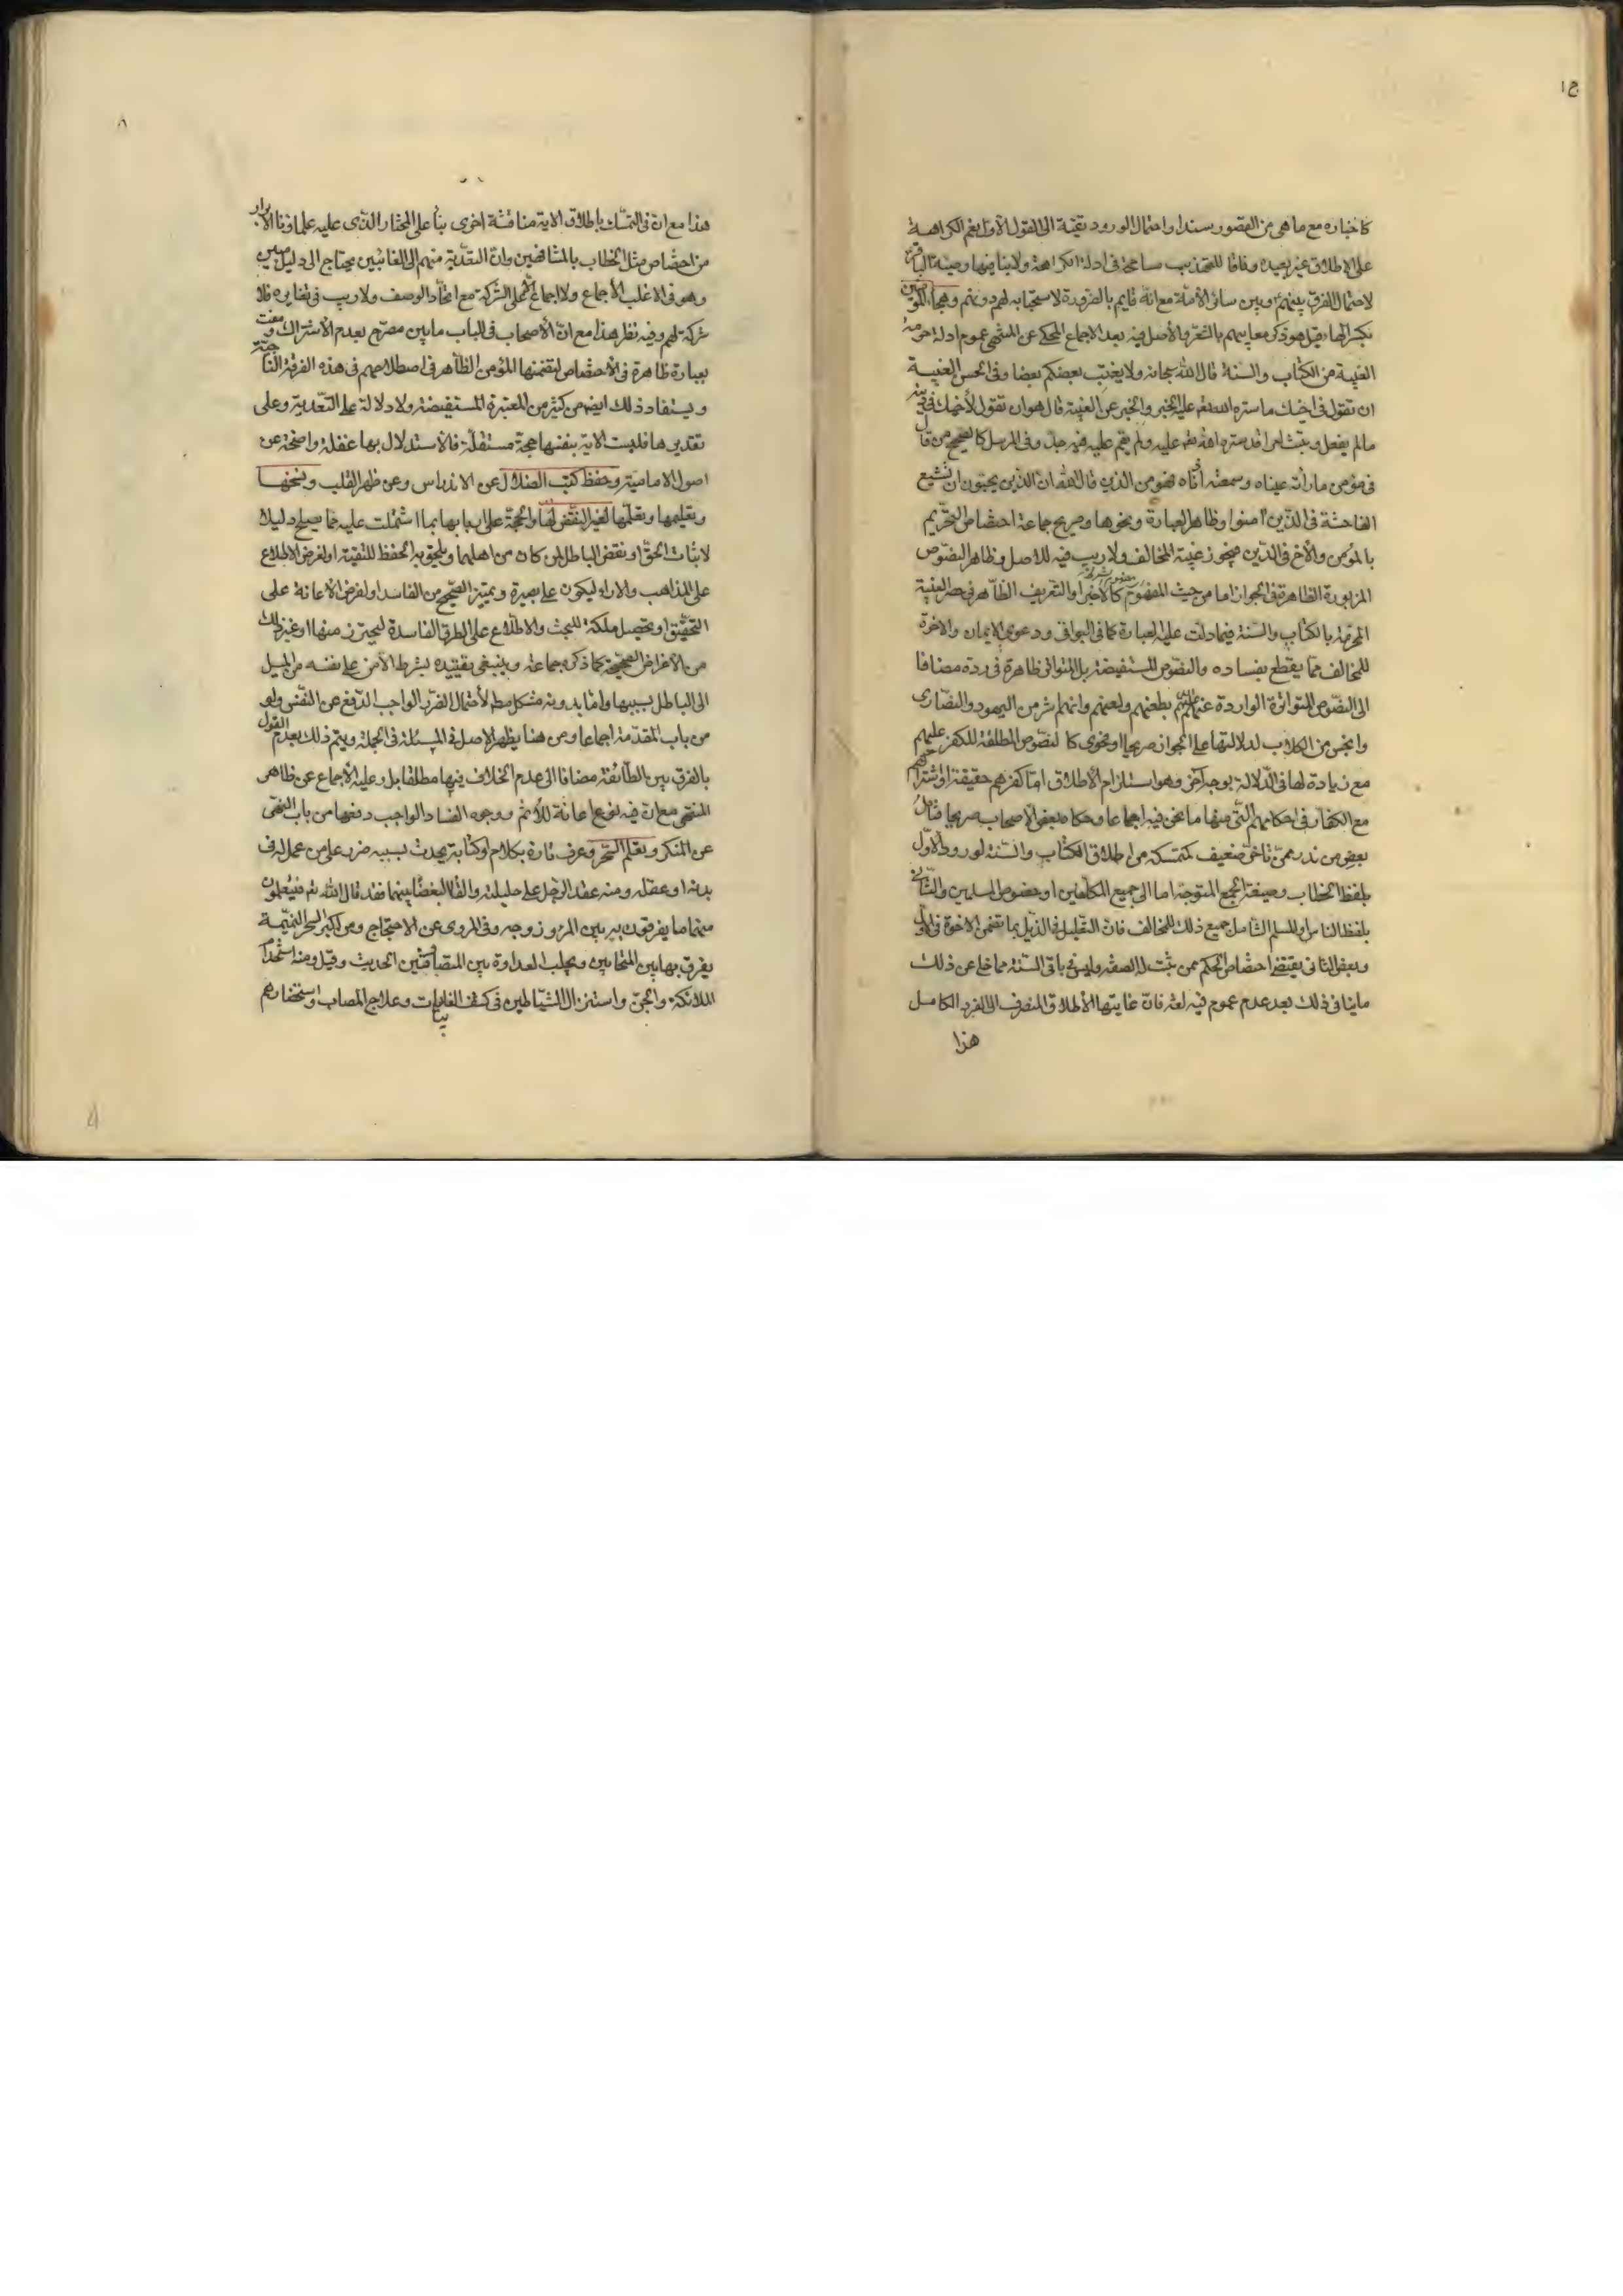 كاخباره مع ما هى من القصور سندا واحتمال الورود تقية الى القول الأول نعم الكراهة
على الاطلاق غير بعيدة وفاقا للتهذيب مسامحة فى ادلة الكراهة ولا ينافيها وصية الباقر
لاحتمال الفرق بينهم وبين سائر الأمة مع انه قايم بالضرورة لاستحبابه لهم دونهم وهجاء المؤمنين
بكسر الهاء قيل هو ذكر معايبهم بالشعر والأصل فيه بعد الاجماع المحكى عن المنتهى عموم ادلة حرمة
الغيبة من الكتاب والسنة قال الله سبحانه ولا يغتب بعضكم بعضا وفى الحسن الغيبة
ان تقول فى اخيك ما ستره الله عليه الخبر والخبر عن الغيبة قال هو ان تقول لأخيك فى دينه
ما لم يفعل وتبث امرا قد ستره الله عليه ولم يقم عليه فيه حد وفى المرسل كالصحيح من قال
فى مؤمن ما راته عيناه وسمعته اذناه فهو من الذين قال الله ان الذين يحبون ان تشيع
الفاحشة فى الذين امنوا وظاهر العبارة ونحوها وصريح جماعة اختصاص التحريم
بالمؤمن والأخ فى الدين فيجوز غيبة المخالف ولا ريب فيه للاصل وظاهر النصوص
المزبورة الظاهرة فى الجواز اما من حيث المفهوم كالأخير او التعريف الظاهر فى حصر الغيبة
المحرمة بالكتاب والسنة فيما دلت عليه العبارة كما فى البواقى ودعوى الايمان والاخوة
للمخالف مما يقطع بفساده والنصوص المستفيضة بل المتواترة ظاهرة فى رده مضافا
الى النصوص المتواترة الواردة عنهم بطعنهم ولعنهم وانهم اشر من اليهود والنصارى
وانجس من الكلاب لدلالتها على الجواز صريحا او فحوى كالنصوص المطلقة للكفر عليهم
مع زيادة لها فى الدلالة بوجه آخر وهو استلزام الأطلاق اما كفرهم حقيقة او اشتراكهم
مع الكفار فى احكامهم التى منها ما نحن فيه اجماعا وحكاه بعض الاصحاب صريحا فتأمل
بعض من ندر ممن تأخر ضعيف كمتمسكه من اطلاق الكتاب والسنة لورود الاول
بلفظ الخطاب وصيغة الجمع المتوجه اما الى جميع المكلفين او خصوص المسلمين والثانى
بلفظ الناس او المسلم الشامل جميع ذلك للمخالف فان التعليل فى الذيل بما تضمن الاخوة فى الاول
وبعض الثانى يقتضى اختصاص الحكم بمن ثبت له الصفة وليس فى باقى السنة مما خلى عن ذلك
ما ينافى ذلك بعد عدم عموم فيه لغة فان غايتها الأطلاق المنصرف الى الفرد الكامل
هذا
هذا مع ان فى التمسك باطلاق الاية مناقشة اخرى بناء على المختار الذى عليه علماؤنا الابرار
من اختصاص مثل الخطاب بالمشافهين وان التعدية منهم الى الغائبين يحتاج الى دليل
وهو فى الاغلب الأجماع ولا اجماع الا على الشركة مع اتحاد الوصف ولا ريب فى تغايره فلا
شركة لهم وفيه نظر هذا مع ان الأصحاب فى الباب ما بين مصرح بعدم الأشتراك و
بعبارة ظاهرة فى الأختصاص لتضمنها المؤمن الظاهر فى اصطلاحهم فى هذه الفرقة الناجية
ويستفاد ذلك ايضا من كثير من المعتبرة المستفيضة ولا دلالة على التعدية وعلى
تقديرها فليست الاية بنفسها حجة مستقلة فالأستدلال بها غفلة واضحة عن
اصول الامامية وحفظ كتب الضلال عن الاندراس وعن ظهر القلب ونسخها
وتعليمها وتعلمها لغير النقض لها والحجة على اربابها بما اشتملت عليه مما يصلح دليلا
لاثبات الحق او نقض الباطل لمن كان من اهلهما ويلحق به الحفظ للتقية او لغرض الاطلاع
على المذاهب والاراء ليكون على بصيرة وتميز الصحيح من الفاسد او لغرض الأعانة على
التحقيق او تحصيل ملكة للبحث والاطلاع على الطرق الفاسدة ليتحرز منها او غير ذلك
من الأغراض الصحيحة كما ذكره جماعة وينبغى تقييده بشرط الأمن على نفسه من الميل
الى الباطل بسببها واما بدونه مشكل مطلقا لأحتمال الضرر الواجب الدفع عن النفس ولو
من باب المقدمة اجماعا ومن هنا يظهر الاصل فى المسئلة فى الجملة ويتم ذلك بعدم القول
بالفرق بين الطائفة مضافا الى عدم الخلاف فيها مطلقا بل وعليه الأجماع عن ظاهر
المنتهى مع ان فيه نوع اعانة للأثم ووجوه الفساد الواجب دفعها من باب النهى
عن المنكر وتعلم السحر وعرف تارة بكلام او كتابة يحدث بسببه ضرر على من عمل له فى
بدنه او عقله ومنه عقد الرجل على حليلته والقاء البغضاء بينهما فقد قال الله تعالى فيتعلمون
منهما ما يفرقون به بين المرء وزوجه وفى المروى عن الاحتجاج ومن اكبر السحر النميمة
يفرق بها بين المتحابين ويجلب العداوة بين المتصافيين الحديث وقيل ومنه استخدام
الملائكة والجن واستنزال الشياطين فى كشف الغايبات وعلاج المصاب واستحضارهم